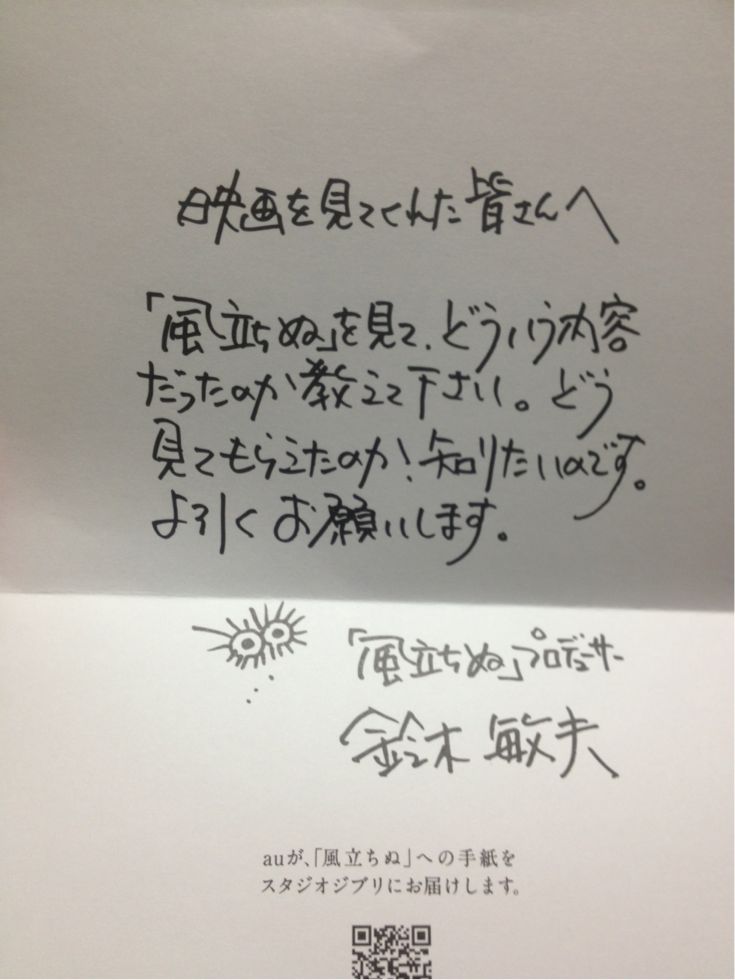 映画を見てくれた皆さんへ
「風立ちぬ」を見て、どういう内容
だったのか教えて下さい。どう
見てもらえたのか！知りたいのです。
よろしくお願いします。
「風立ちぬ」プロデューサー
鈴木敏夫
auが、「風立ちぬ」への手紙を
スタジオジブリにお届けします。